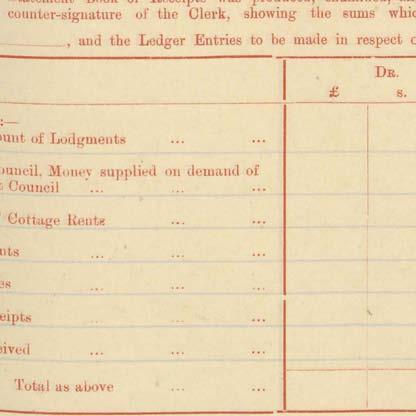 Statement Book of Receipts was produced, examined, an
counter-signature of the Clerk, showing the sums whic
, and the Ledger Entries to be made in respect o
DR.
£ s.
:—
ount of Lodgments ... ...
ouncil, Money supplied on demand of
t Council ... ... ...
Cottage Rents ... ...
nts ... ... ...
es ... ... ...
eipts ... ... ...
eived ... ... ...
Total as above ... ...